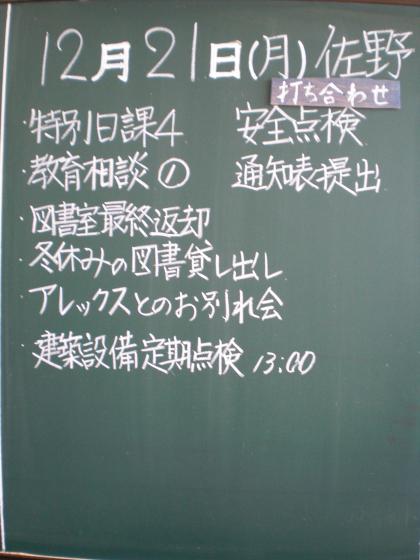 12月21日(月)佐野
打ち合わせ
・特別日課4 安全点検
・教育相談① 通知表提出
・図書室最終返却
・冬休みの図書貸し出し
・アレックスとのお別れ会
・建築設備定期点検 13:00